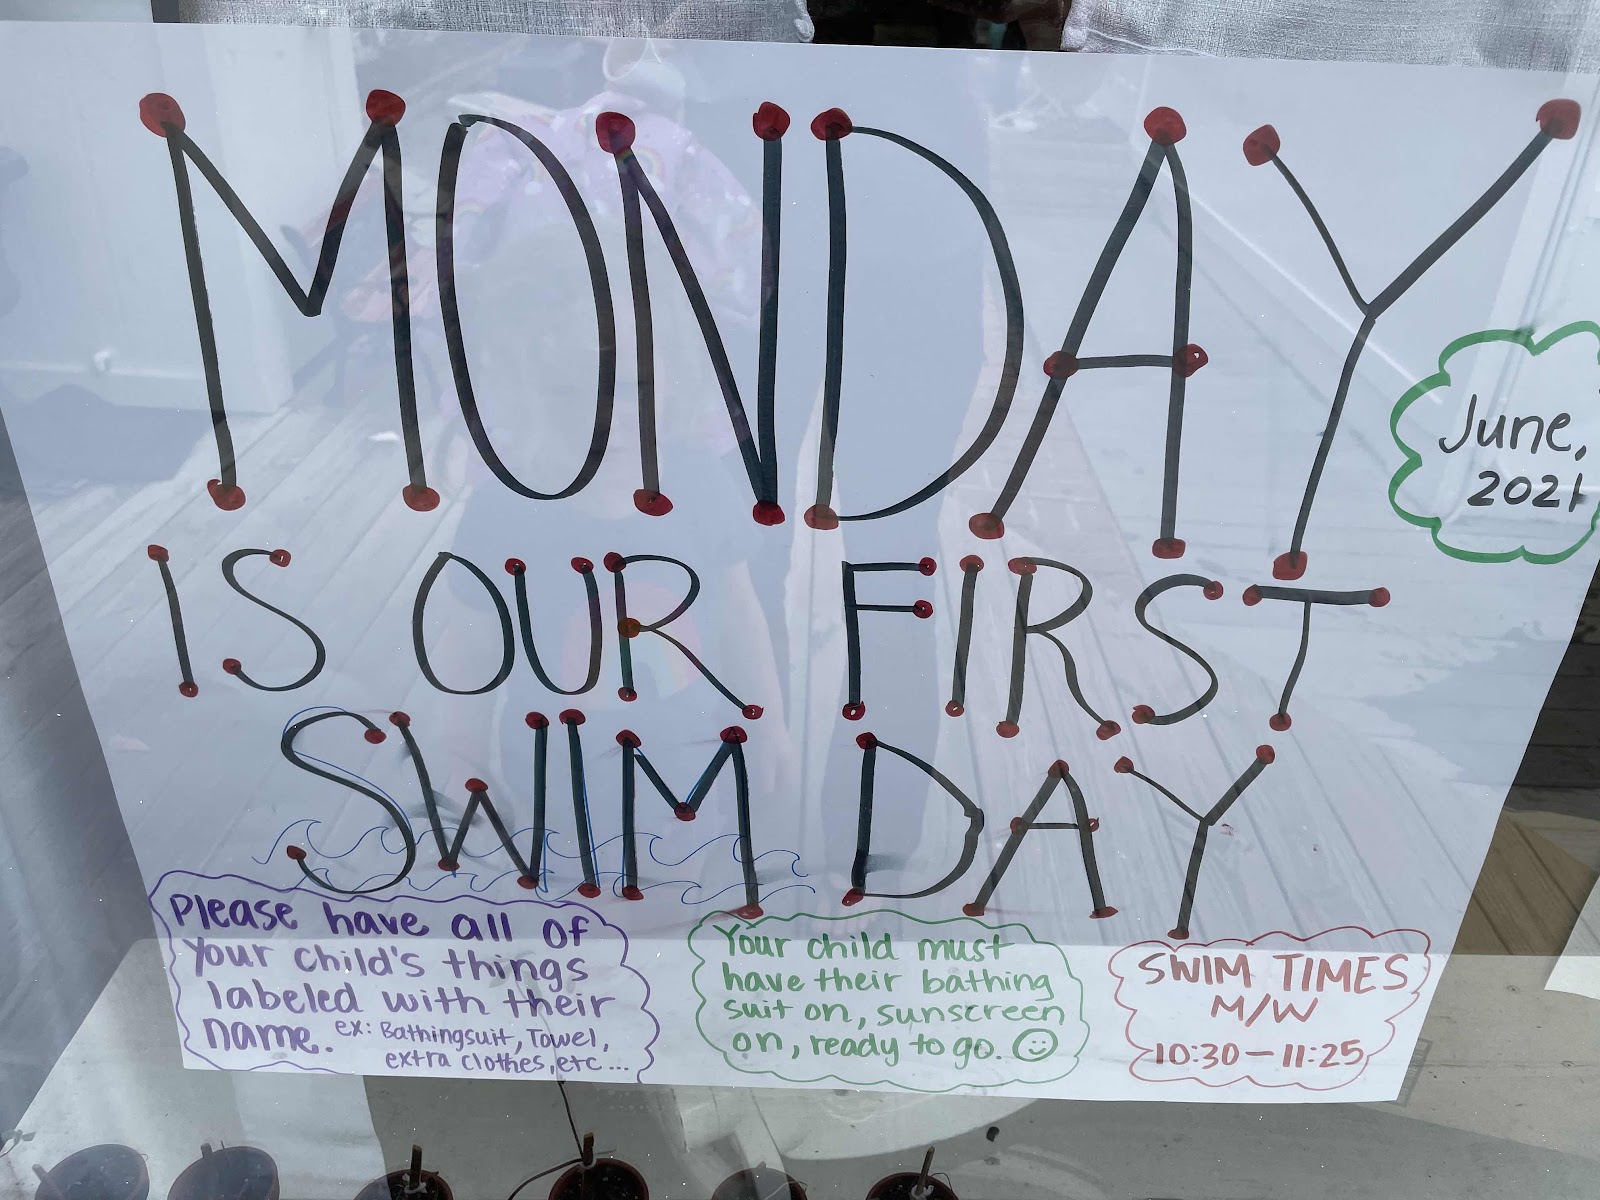 MONDAY
June,
2021
IS OUR FIRST
SWIM DAY
Please have all of
your child's things
labeled with their
name. ex: Bathingsuit, Towel,
extra clothes, etc...
Your child must
have their bathing
suit on, sunscreen
on, ready to go.
SWIM TIMES
M/W
10:30 - 11:25